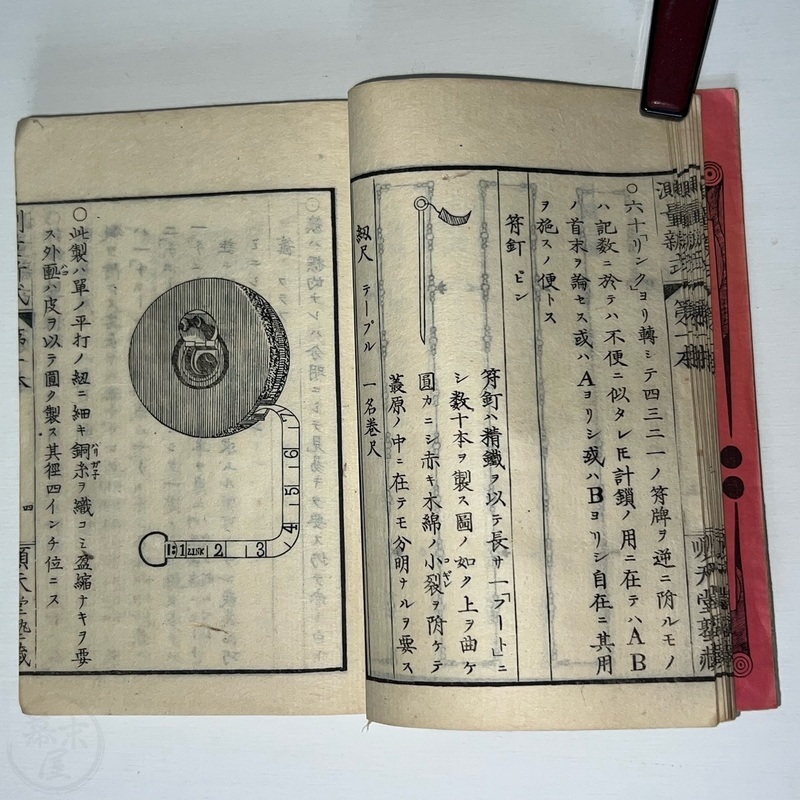 測量新式 第一本
順天堂塾蔵
○六十「リンク」ヨリ轉シテ四三二一ノ符牌ヲ逆ニ附ルモノ
ハ記数ニ於テハ不便ニ似タレ𪜈計鎖ノ用ニ在テハAB
ノ首末ヲ論セス或ハAヨリシ或ハBヨリシ自在ニ其用
ヲ施スノ便トス
符釘 ピン
符釘ハ精鐵ヲ以テ長サ一「フート」ニ
シ数十本ヲ製ス圖ノ如ク上ヲ曲ケ
圓カニシ赤キ木綿ノ小裂ヲ附ケテ
叢原ノ中ニ在テモ分明ナルヲ要ス
紐尺 テープル 一名巻尺
1 LINK 2 3 4 5 6 7
○此製ハ單ノ平打ノ紐ニ細キ銅糸ヲ織コミ盈縮ナキヲ要
ハリガネ
ス外匭ハ皮ヲ以テ圓ク製ス其徑四インチ位ニス
四
順天堂塾蔵